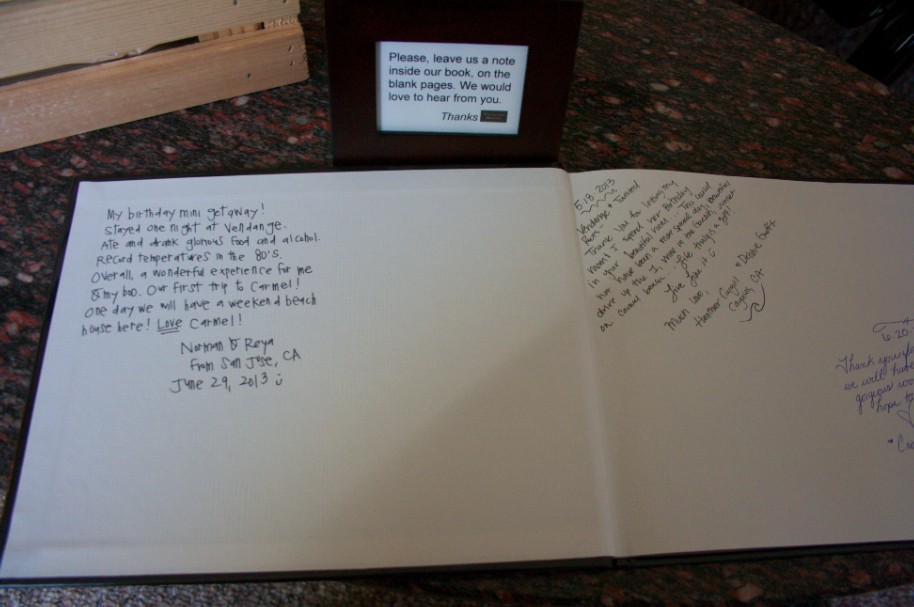 Please, leave us a note
inside our book, on the
blank pages. We would
love to hear from you.
Thanks
My birthday mini getaway!
Stayed one night at Vendange.
Ate and drank glorious food and alcohol.
Record temperatures in the 80's.
Overall, a wonderful experience for me
& my boo. Our first trip to Carmel!
One day we will have a weekend beach
house here! Love Carmel!
Norman & Reya
from San Jose, CA
June 29, 2013
5.18.2013
Vendange &
Thank you for letting my
mom & I spend her birthday
in your beautiful home. This could
not have been a more special day, beautiful
drive up the 1, wine in the sunset
on Carmel beach. Life truly is a gift!
Live for it
Much love,
Heather & Debbie
CA
6.20
Thank you
we will have
hope to